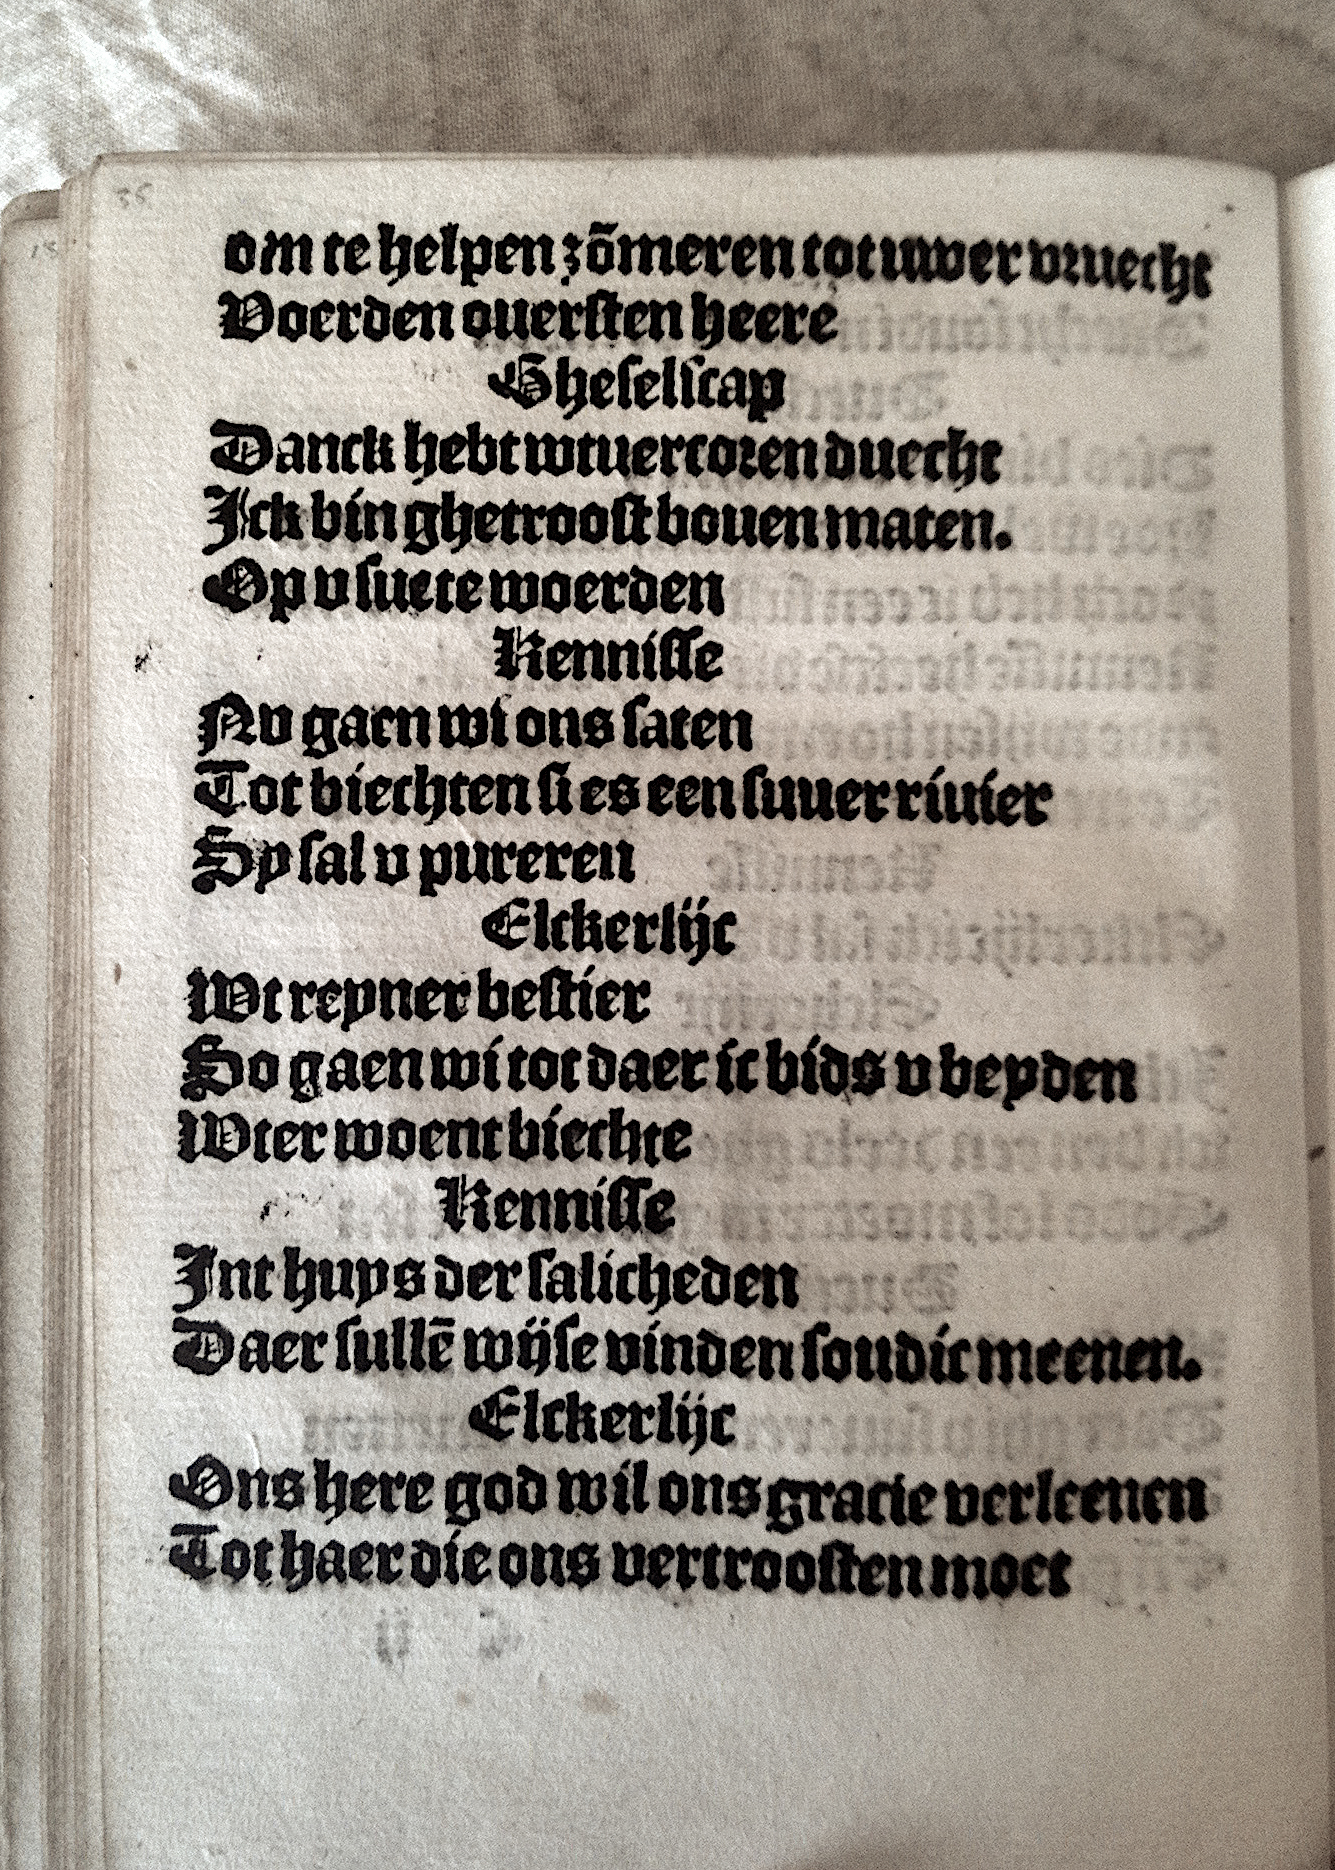 om te helpen zõmeren tot uwer vruecht
Voerden ouersten heere
Gheselscap
Danck hebt wtuercoren duecht
Jck bin ghetroost bouen maten.
Op v suete woerden
Kennisse
Nv gaen wi ons saten
Tot biechten si es een suuer riuier
Sy sal v pureren
Elckerlijc
Wt reyner bestier
So gaen wi tot daer ic bids v beyden
Wter woent biechte
Kennisse
Jnt huys der salicheden
Daer sullē wijse vinden soudic meenen.
Elckerlijc
Ons here god wil ons gracie verleenen
Tot haer die ons vertroosten moet